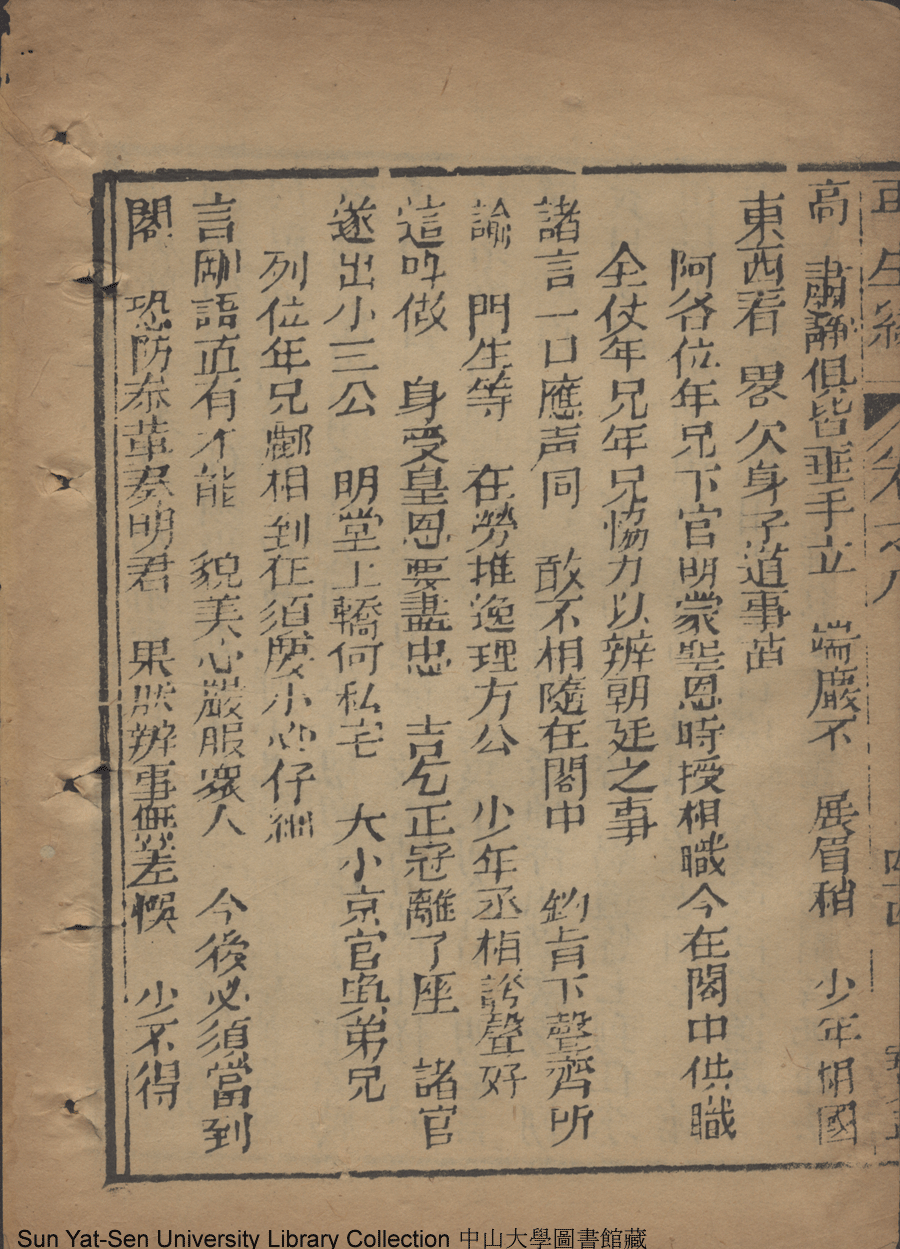 再生緣 卷之八
高 肅靜俱皆垂手立 端嚴不 展眉稍 少年相國
東西看 畧欠身子道事苗
阿各位年兄下官明蒙聖恩時授相職今在閣中供職
全仗年兄年兄恊力以辨朝廷之事
諸言一口應声同 敢不相隨在閣中 鈞旨下聲齊所
諭 門生等 在勞推逸理方公 少年丞相誇聲好
這呌做 身受皇恩要盡忠 言乞正冠離了座 諸官
遂出小三公 明堂上轎何私宅 大小京官與弟兄
列位年兄酈相到任須要小心仔細
言剛語直有才能 貌美心嚴服衆人 今後必須當到
閣 恐防叅革奏明君 果然辨事無差悞 少不得
Sun Yat-Sen University Library Collection 中山大學圖書館藏